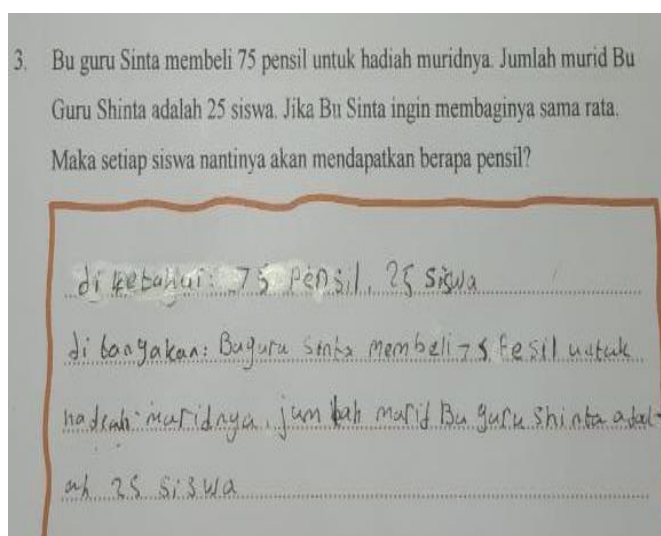 3. Bu guru Sinta membeli 75 pensil untuk hadiah muridnya. Jumlah murid Bu
Guru Shinta adalah 25 siswa. Jika Bu Sinta ingin membaginya sama rata.
Maka setiap siswa nantinya akan mendapatkan berapa pensil?
di ketahui: 75 Pensil, 25 siswa
di tanyakan: Buguru Sinta membeli 75 Pesil untuk
hadiah muridnya. jumlah murid Bu guru Shinta adal-
ah 25 siswa